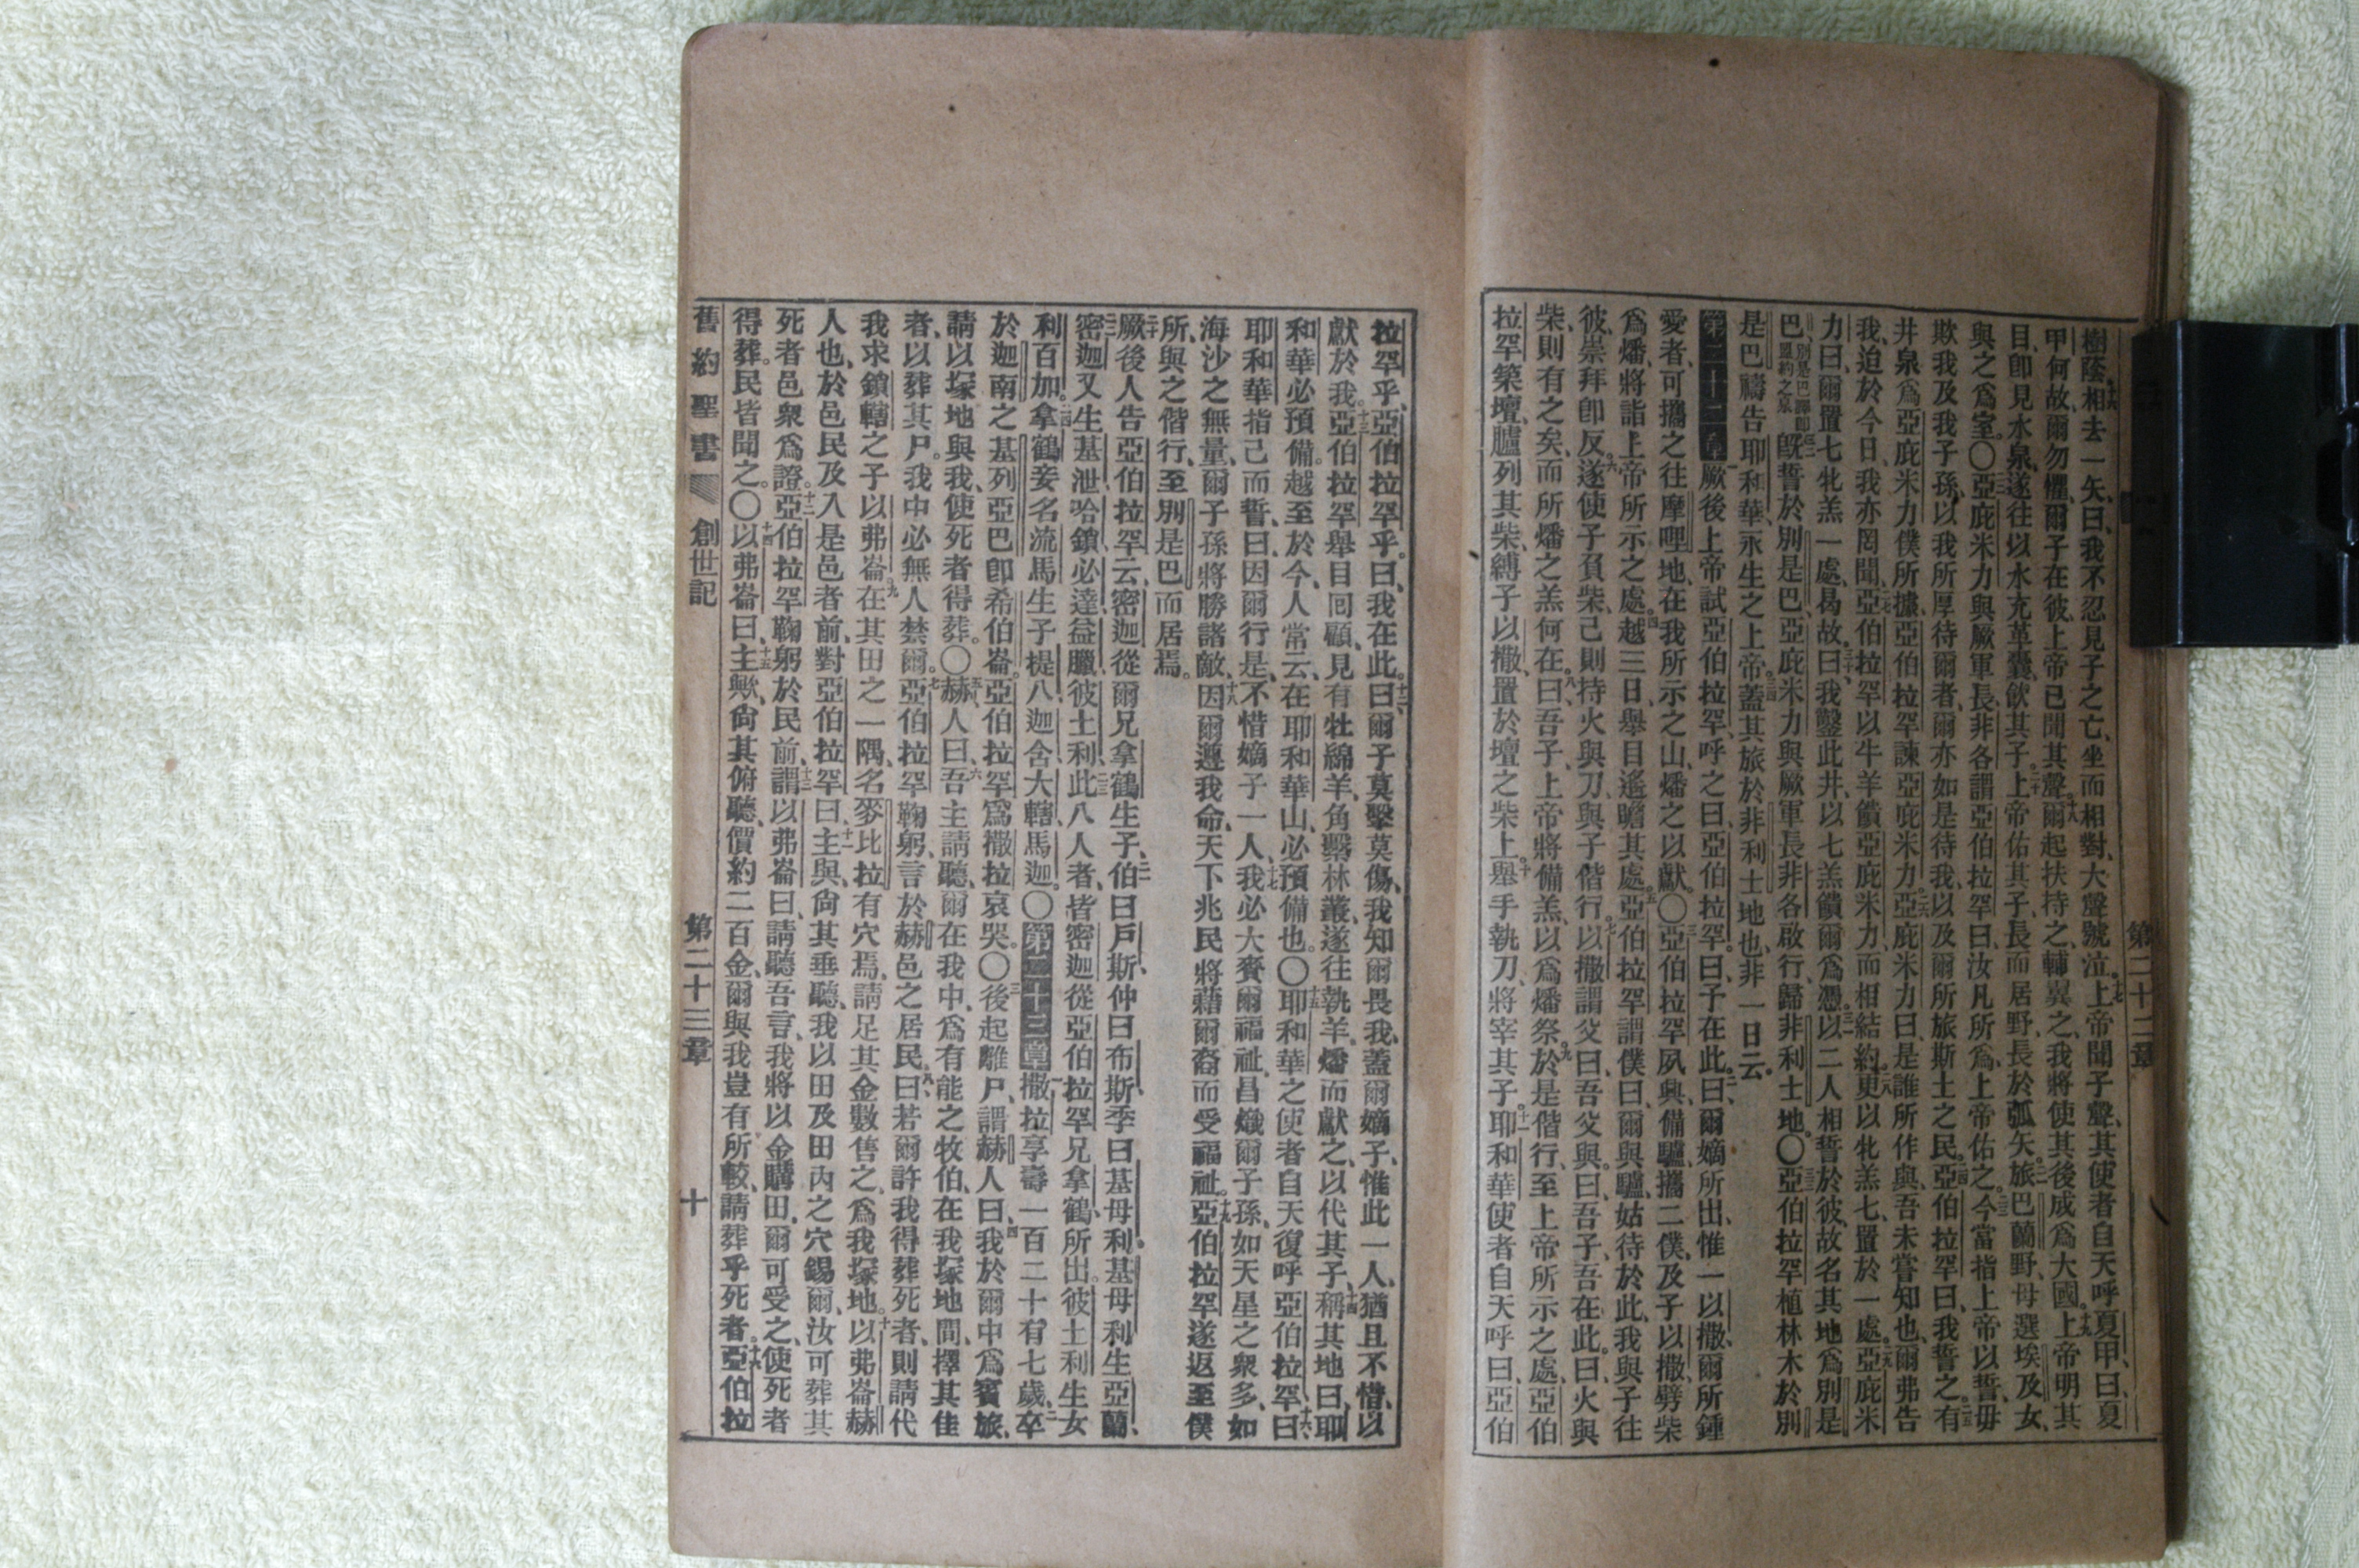 樹蔭、十六相去一矢、曰、我不忍見子之亡、坐而相對、大聲號泣。十七上帝聞子聲、其使者自天呼夏甲、曰、夏
甲何故、爾勿懼、爾子在彼、上帝已聞其聲。十八爾起扶持之、輔翼之、我將使其後成爲大國。十九上帝明其
目、卽見水泉、遂往以水充革囊、飲其子。二十上帝佑其子、長而居野、長於弧矢。二一旅巴蘭野、母選埃及女、
與之爲室。〇二二亞庇米力與厥軍長非各謂亞伯拉罕曰、汝凡所爲、上帝佑之。二三今當指上帝以誓、毋
欺我及我子孫、以我所厚待爾者、爾亦如是待我、以及爾所旅斯土之民。二四亞伯拉罕曰、我誓之。二五有
井泉爲亞庇米力僕所攘、亞伯拉罕諫亞庇米力。二六亞庇米力曰、是誰所作與、吾未嘗知也、爾弗告
我、迨於今日、我亦罔聞。二七亞伯拉罕以牛羊饋亞庇米力、而相結約。二八更以牝羔七、置於一處。二九亞庇米
力曰、爾置七牝羔一處、曷故。三十曰、我鑿此井、以七羔饋爾爲憑。三一以二人相誓於彼、故名其地爲別是
巴。別是巴譯卽盟約之泉三二旣誓於別是巴、亞庇米力與厥軍長非各啟行、歸非利士地。〇三三亞伯拉罕植林木於別
是巴、禱告耶和華、永生之上帝。三四蓋其旅於非利士地也、非一日云。
第二十二章一厥後上帝試亞伯拉罕、呼之曰、亞伯拉罕。曰、予在此。二曰、爾嫡所出、惟一以撒、爾所鍾
愛者、可攜之往摩哩地、在我所示之山、燔之以獻。〇三亞伯拉罕夙興、備驢、攜二僕、及子以撒、劈柴
爲燔、將詣上帝所示之處。四越三日、舉目遙瞻其處。五亞伯拉罕謂僕曰、爾與驢、姑待於此、我與子往
彼、崇拜卽反。六遂使子負柴、己則持火與刀、與子偕行。七以撒謂父曰、吾父與。曰、吾子、吾在此。曰、火與
柴、則有之矣、而所燔之羔何在。八曰、吾子、上帝將備羔、以爲燔祭。九於是偕行、至上帝所示之處、亞伯
拉罕築壇、臚列其柴、縛子以撒、置於壇之柴上。十舉手執刀、將宰其子。十一耶和華使者自天呼曰、亞伯
拉罕乎、亞伯拉罕乎。曰、我在此。十二曰、爾子莫擊莫傷、我知爾畏我、蓋爾嫡子、惟此一人、猶且不惜、以
獻於我。十三亞伯拉罕舉目回顧、見有牡綿羊、角繫林叢、遂往執羊、燔而獻之、以代其子。十四稱其地曰、耶
和華必預備。越至於今、人常云、在耶和華山、必預備也。〇十五耶和華之使者自天復呼亞伯拉罕曰、十六
耶和華指己而誓、曰、因爾行是、不惜嫡子一人、十七我必大賚爾福祉、昌熾爾子孫、如天星之衆多、如
海沙之無量、爾子孫將勝諸敵、十八因爾遵我命、天下兆民將藉爾裔而受福祉。十九亞伯拉罕遂返至僕
所、與之偕行、至別是巴而居焉。
二十厥後人告亞伯拉罕云、密迦從爾兄拿鶴生子、二一伯曰戶斯、仲曰布斯、季曰基母利。基母利生亞蘭、
二二密迦又生基泄、哈鎖、必達、益臘、彼土利、二三此八人者、皆密迦從亞伯拉罕兄拿鶴所出。彼土利生女
利百加。二四拿鶴妾名流馬、生子提八、迦含、大轄、馬迦。〇第二十三章一撒拉享壽一百二十有七歲、二卒
於迦南之基列亞巴、卽希伯崙。亞伯拉罕爲撒拉哀哭。〇三後起離尸、謂赫人曰、四我於爾中爲賓旅、
請以塚地與我、使死者得葬。〇五赫人曰、六吾主請聽、爾在我中、爲有能之牧伯、在我塚地間、擇其佳
者、以葬其尸。我中必無人禁爾。七亞伯拉罕鞠躬、言於赫邑之居民、八曰、若爾許我得葬死者、則請代
我求鎖轄之子以弗崙。九在其田之一隅、名麥比拉、有穴焉、請足其金數售之、爲我塚地。十以弗崙赫
人也、於邑民及入是邑者前、對亞伯拉罕曰、十一主與、尙其垂聽、我以田及田內之穴錫爾、汝可葬其
死者、邑衆爲證。十二亞伯拉罕鞠躬於民前、十三謂以弗崙曰、請聽吾言、我將以金購田、爾可受之、使死者
得葬。民皆聞之。〇十四以弗崙曰、十五主歟、尙其俯聽、價約二百金、爾與我豈有所較、請葬乎死者。十六亞伯拉
舊約聖書 創世記 第二十三章 十
第二十二章